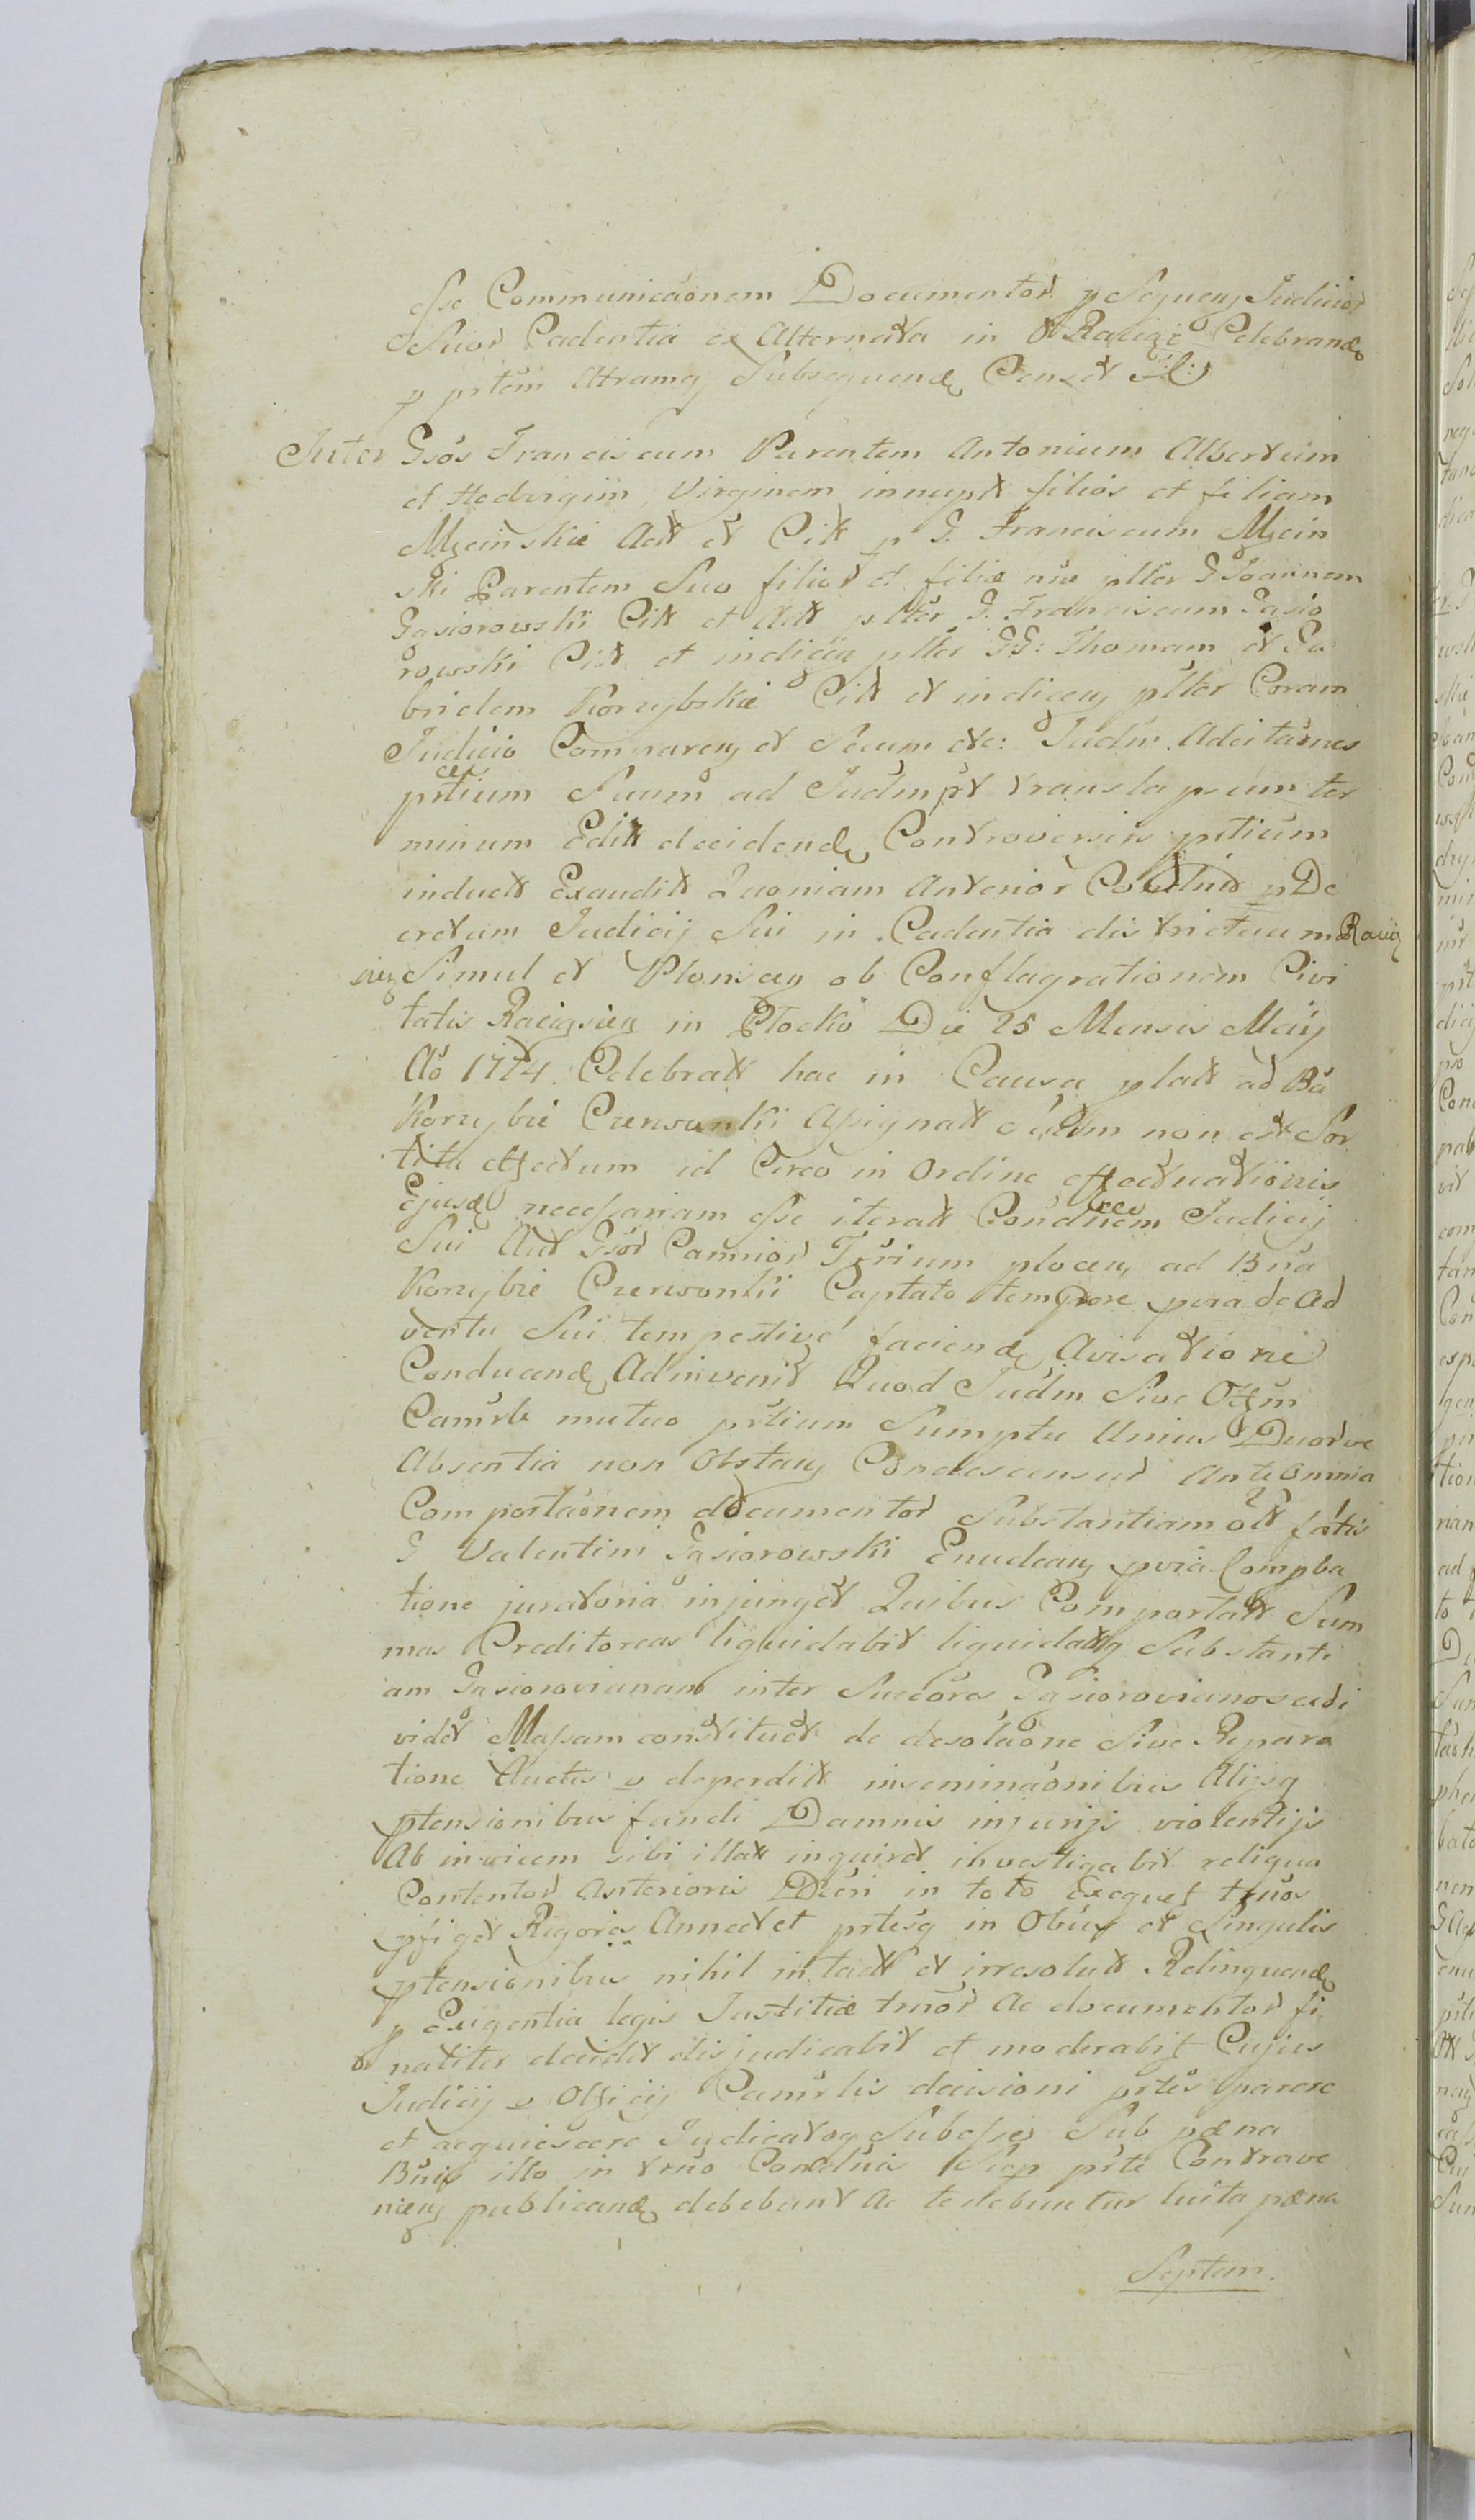 esse Communicãonem Documentor p Sequen Judicior
Suor Cadentia ex Alternata in Raciąż Celebrand
p prtem Utramq Subsequend Censet
Inter Gsos Franciscum Parentem Antonium Albertum
et Hedvigim Virginem innupt filios et filiam
Mzcinskie Act et Cit p G. Franciscum Mzcin
ski Parentem Suo filior et filiæ nie plter G Joannem
Gąsiorowski Cit et Act plter G. Franciscum Gąsio
rowski Cit et indigen plter GG: Thomam et Ga
brielem Korzybskie Cit et indicen plter Coram
Judicio Comparen et Secum etc: Judm Adcitaones
prtium Suum ad Judm translapsum ter
minum Edit decidend Controversiis prtium
induct Exaudit Quoniam Anterior p De
cretum Judicij Sui in Cadentia districtuum Raciąż
sien Simul et Plonscen ob Conflagrationem Civi
tatis Raciąsien in Płocko Die 25 Mensis Maij
Ao 1774 Celebrat hac in Causa plat ad Ba
Korzybie Czerwonki Assignat non est Sor
tita effectum id Circo in Ordine effectuationis
Ejusd necessariam esse iterat Condnem Judicij
Sui Aut Gsor Camrior Trrium plocen ad Bna
Korzybie Czerwonki Captato tempore pvia de Ad
ventu Sui tempestive faciend Avisatione
Conducend Adinvenit Quod Judm Sive Offm
Camrle mutuo prtium Sumptu Unius Duorve
Absentia non Obstan Condescensur Ante Omnia
Comportaonem documentor Substantiam olt fatis
G Valentini Gąsiorowski Enudean pvia Compba
tione juratoria injunget Quibus Comportat Sum
mas Creditoreas liquidabit liquidatq Substanti
am Gąsiorovianam inter Succores Gąsiorovianos
videt Massam constituet de desolaone Sive Repara
tione Auctis v deperdit inseminaonibus Alijsq
ptensionibus fundi Damnis injurijs violentijs
Ab invicem sibi illat inquiret investigabit reliqua
Contentor Anterioris Dcti in toto Exequet tmos
pfiget Rigores Annectet prtesq in Obus et Singulis
ptensionibus nihil intact et irresolut Relinquend
p Exigentia legis Justitiæ tmor Ac documentor fi
naliter decidet disjudicabit et moderabit Cujus
Judicij v Officij Camrlis decisioni prtes parere
et acquiescere Judicatoq Subesse Sub pæna
Bnis illo in tmo Condnis Super prte Contrave
nien publicand debebunt Ac tenebuntur luita pæna
Septem.